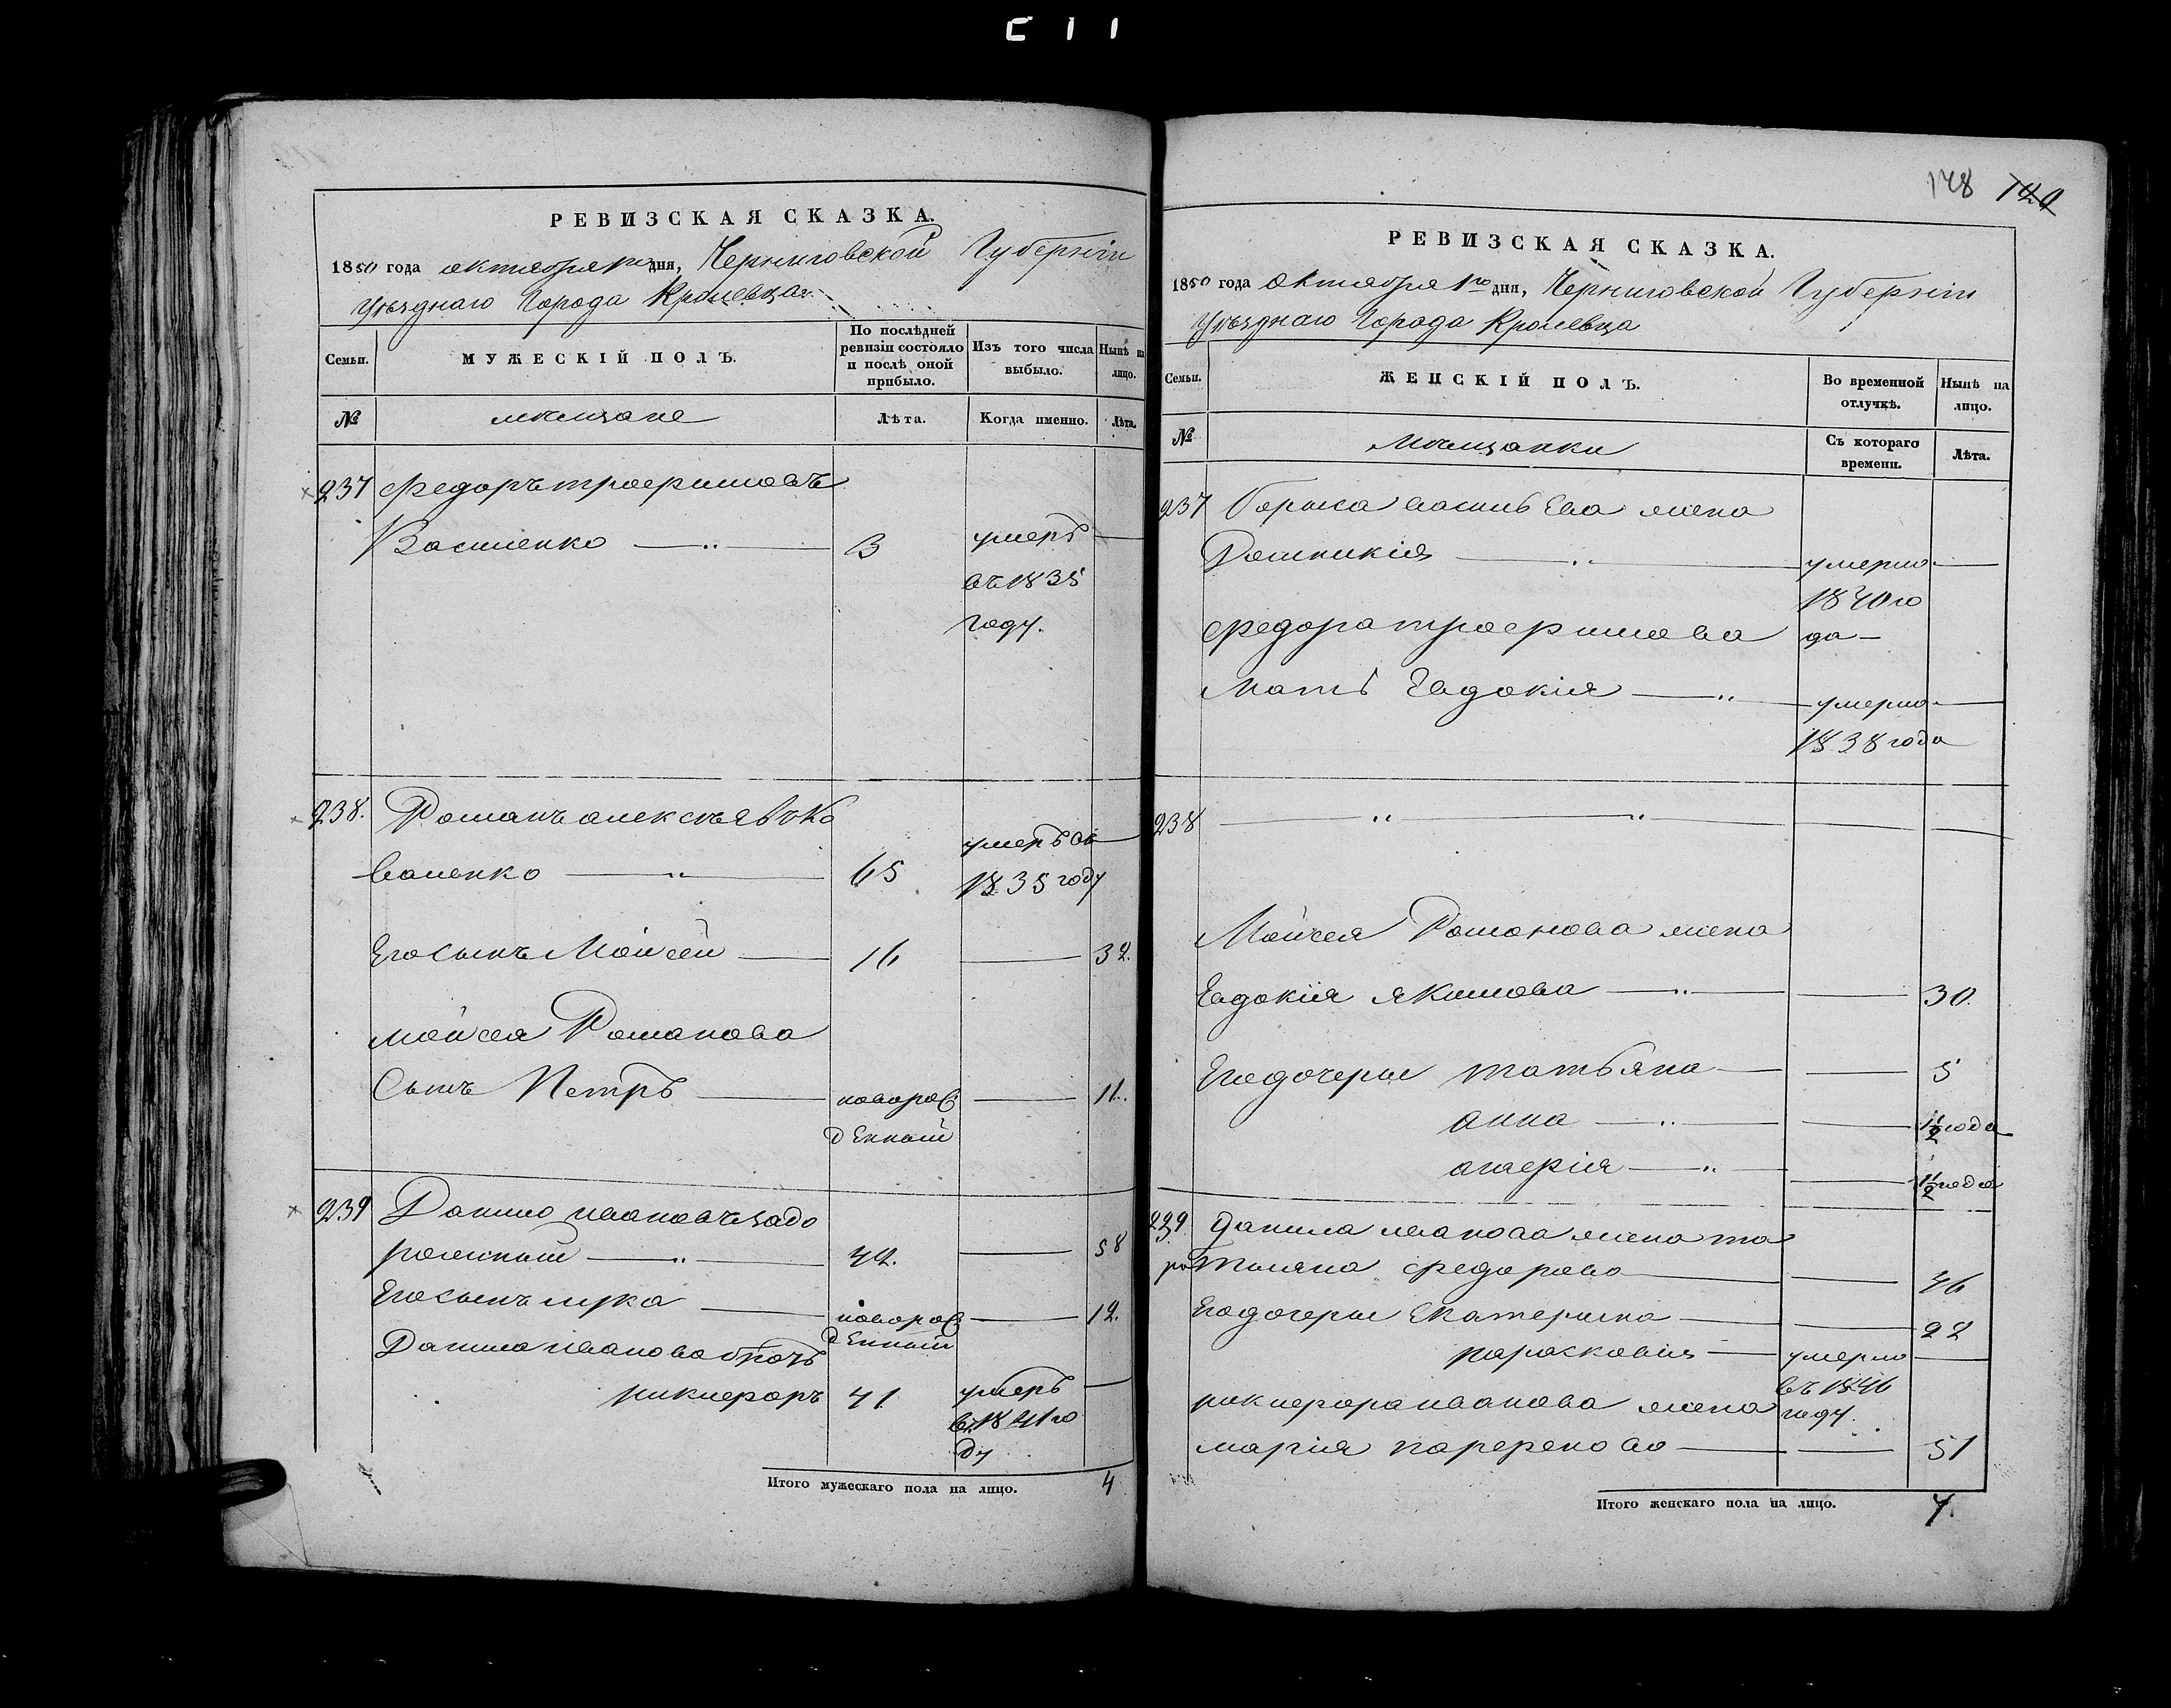 148 149
РЕВИЗСКАЯ СКАЗКА.
1850 года октября 1го дня, Черниговской Губернiи
уѣзднаго Города Кролевца
Семьи.
МУЖЕСКIЙ ПОЛЪ.
По послѣдней ревизiи состояло и послѣ оной прибыло.
Изъ того числа выбыло.
Нынѣ на лицо.
№
мѣщане
Лѣта.
Когда именно.
Лѣта.
237 Федоръ трофимовъ
Василенко 3 умеръ
въ 1835
году.
238. Романъ алексѣевъ Ко
валенко 65 умеръ въ
1835 году
Его сынъ Мойсей 16 32.
мойсея Романова
Сынъ Петръ новорож 11.
денный
239 Данило ивановъ задо
рожный 42. 58
Его сынъ лука новорож 12.
денный
Данила иванова братъ
никифоръ 41 умеръ
въ 1841 го
ду
Итого мужескаго пола на лицо. 4
РЕВИЗСКАЯ СКАЗКА.
1850 года октября 1го дня, Черниговской Губернiи
уѣзднаго Города Кролевца
Семьи.
ЖЕНСКIЙ ПОЛЪ.
Во временной отлучкѣ.
Нынѣ на лицо.
№
Мѣщанки
Съ котораго времени.
Лѣта.
237 жена
умерла
1840 го
Федора трофимова да
Мать Евдокiя
умерла
1838 года
238
Мойсея Романова жена
Евдокiя Якимова 30.
Его дочери татьяна 5
анна 1/2 года
1/2 года
239 Данила иванова жена
федорова 46
Его дочери Екатерина 22
парасковiя умерла
въ 1846
никифора иванова жена году.
марiя 51
Итого женскаго пола на лицо. 7.